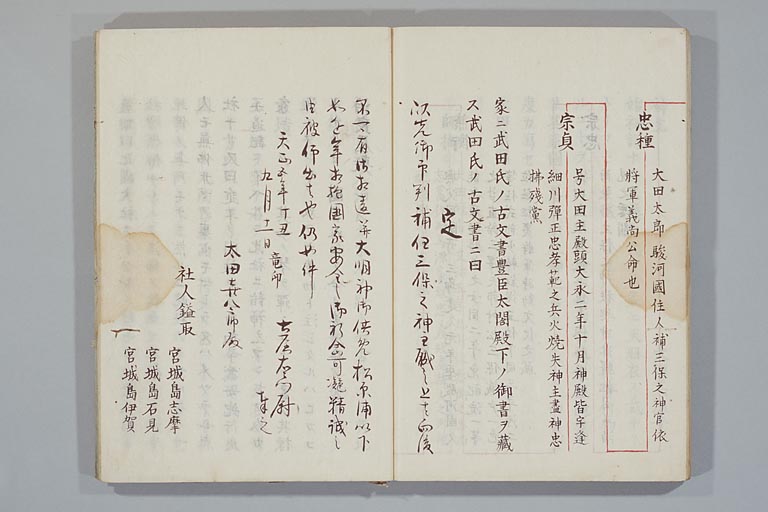 忠種
大田太郎駿河國住人補三保之神官依
將軍義尚公命也
宗貞
号大田主殿頭大永二年十月神殿皆宇逢
細川彈正忠孝範之兵火燒失神主盡神忠
拂殘黨
家ニ武田氏ノ古文書豐臣太閤殿下ノ御書ヲ藏
ス武田氏ノ古文書ニ曰
定
以先御印判補任三保之神主職之上者向後
不可有御相違并大明神御供免松原浦以下
如近年相抱國家安全之御祈念可凝精誠之
由被仰出者也仍如件
天正五年丁丑
九月十二日 竜印
太田喜八郎殿
社人鎰取
宮城島志摩
宮城島石見
宮城島伊賀